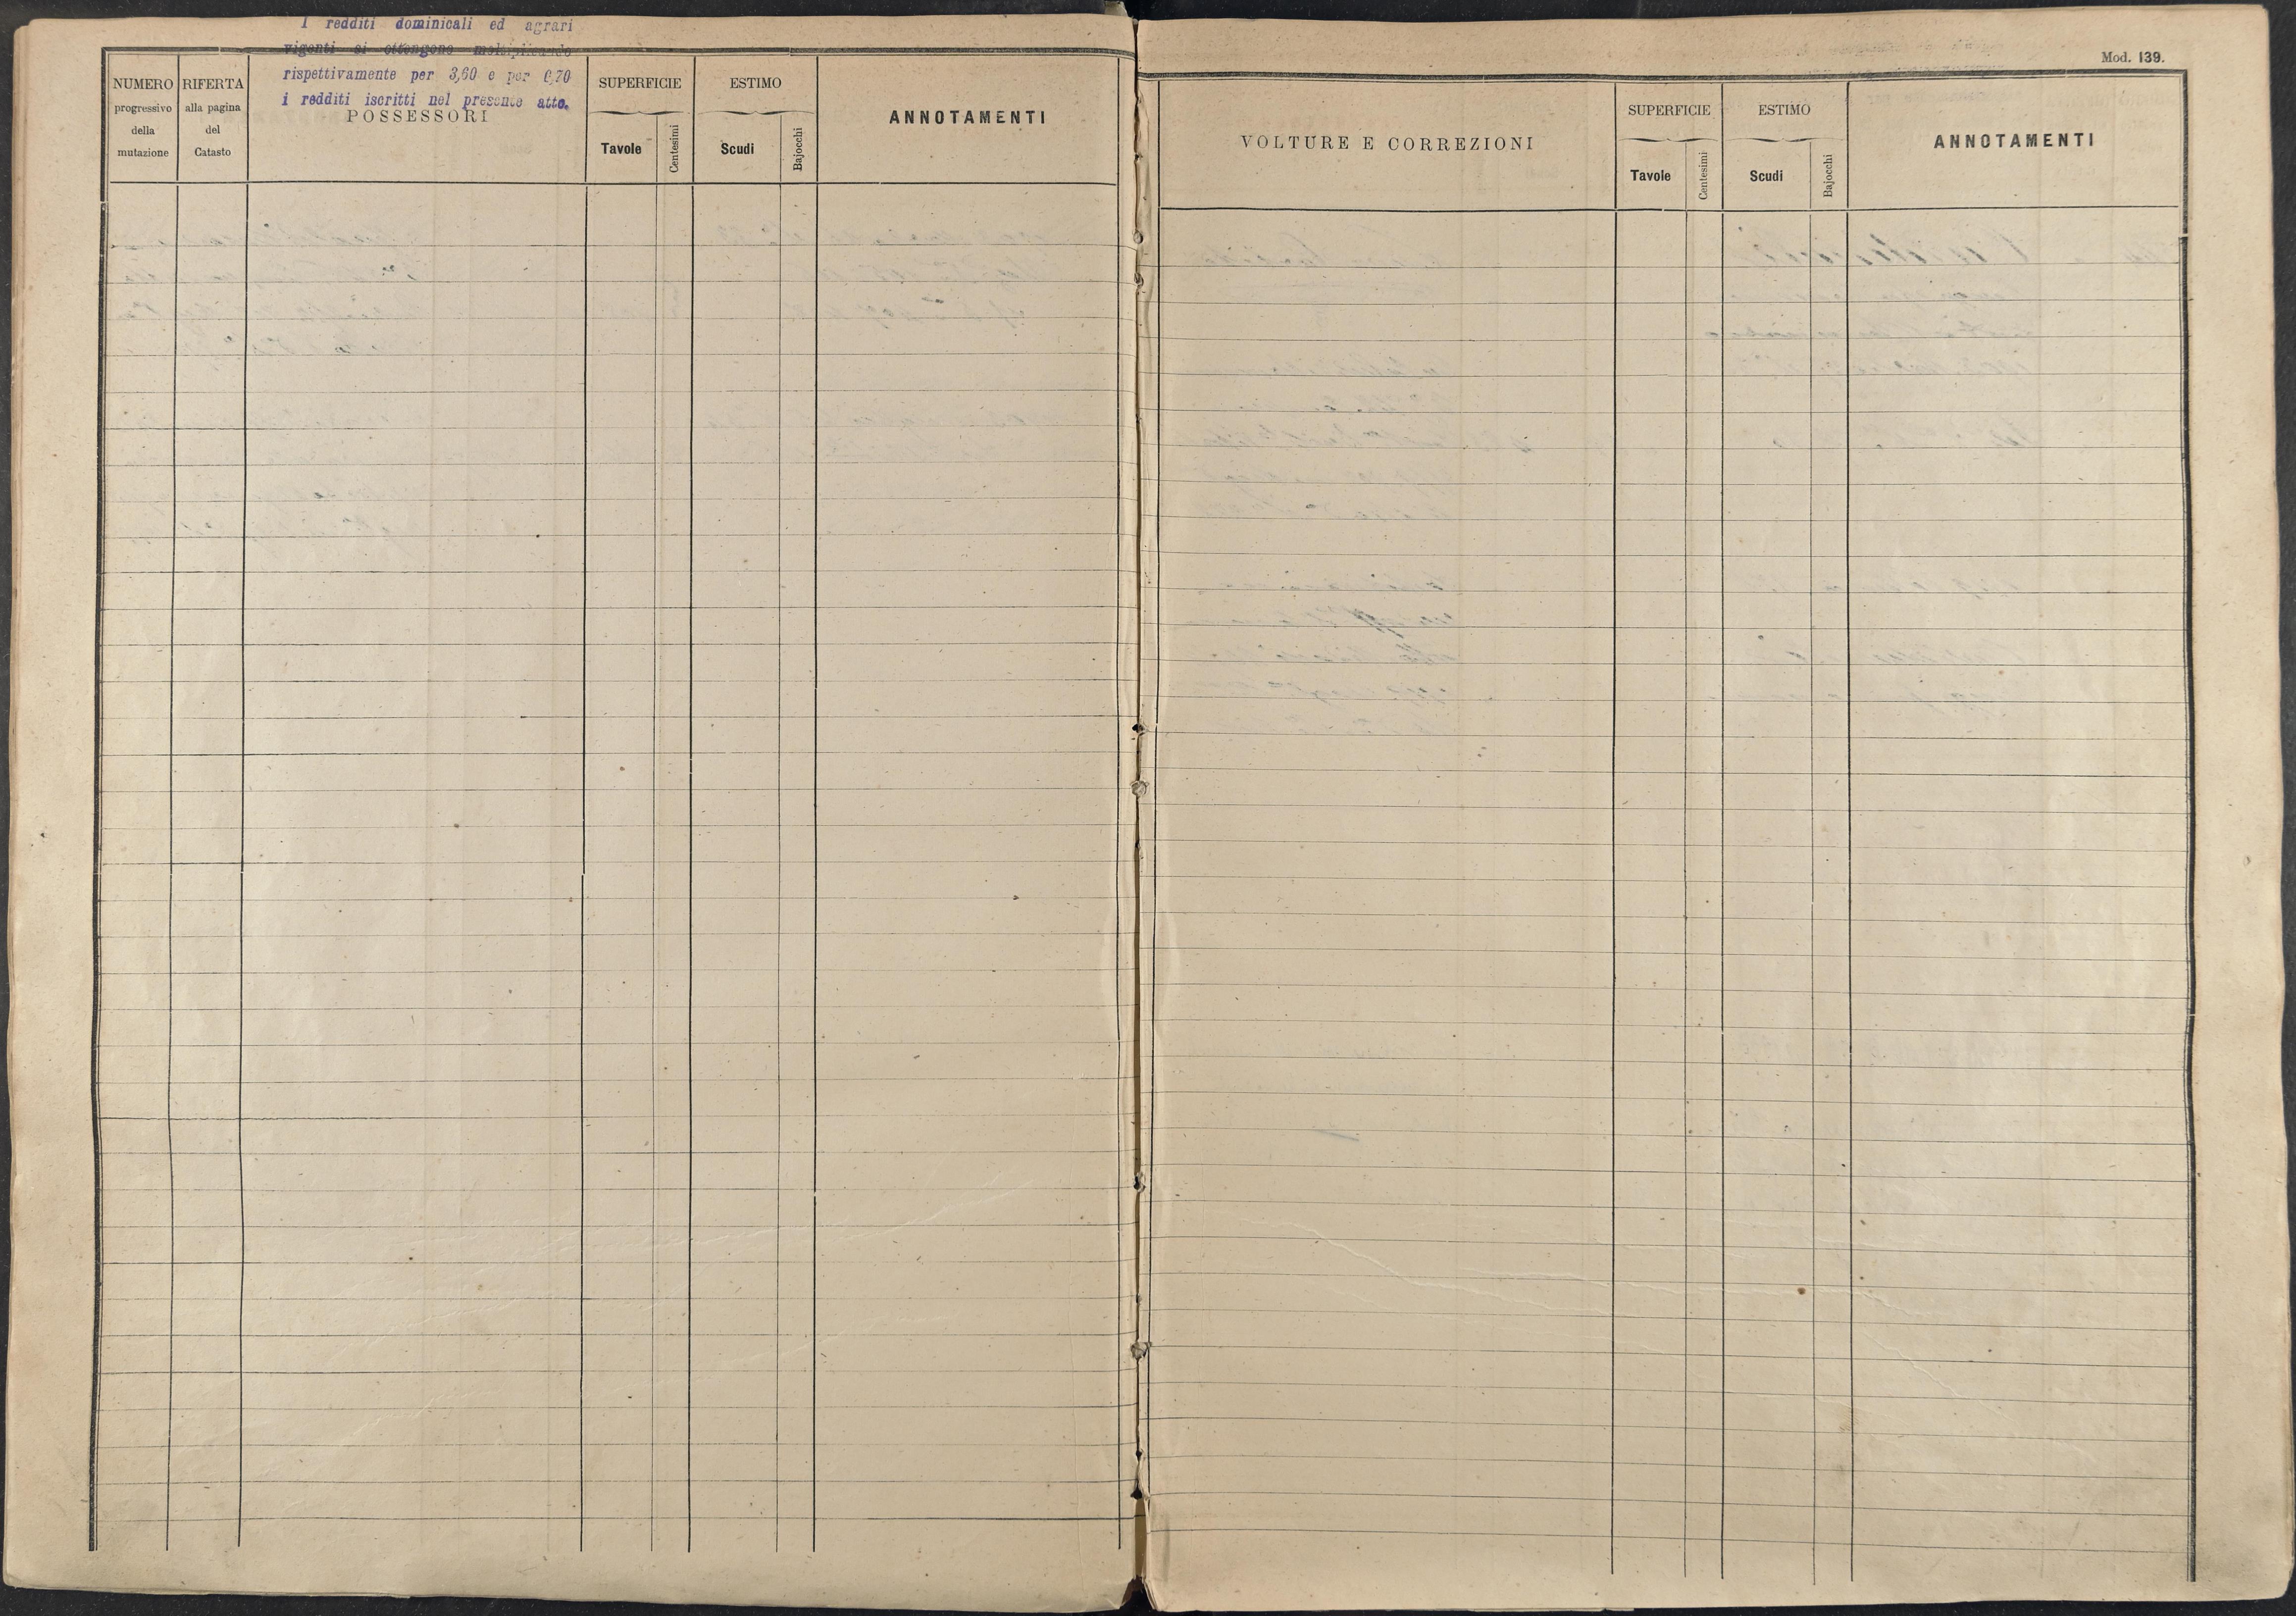 I redditi dominicali ed agrari
vigenti si ottengono moltiplicando
rispettivamente per 3,60 e per 0,70
i redditi iscritti nel presente atto.
NUMERO
progressivo
della
mutazione
RIFERTA
alla pagina
del
Catasto
POSSESSORI
SUPERFICIE
Tavole
Centesimi
ESTIMO
Scudi
Bajocchi
ANNOTAMENTI
Mod. 139.
VOLTURE E CORREZIONI
SUPERFICIE
Tavole
Centesimi
ESTIMO
Scudi
Bajocchi
ANNOTAMENTI